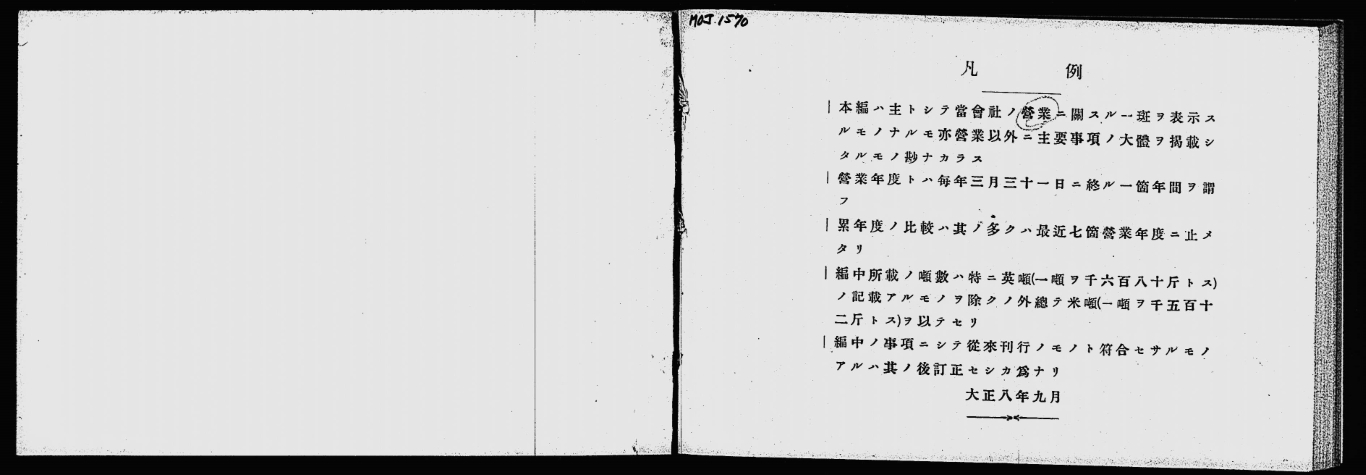 MOJ.1570
凡例
一本編ハ主トシテ當會社ノ營業ニ關スル一班ヲ表示ス
ルモノナルモ亦營業以外ニ主要事項ノ大體ヲ揭載シ
タルモノ尠ナカラス
一營業年度トハ每年三月三十一日ニ終ル一箇年間ヲ謂
フ
一累年度ノ比較ハ其ノ多クハ最近七箇營業年度ニ止メ
タリ
一編中所載ノ噸數ハ特ニ英噸(一噸ヲ千六百八十斤トス)
ノ記載アルモノヲ除クノ外總テ米噸(一噸ヲ千五百十
二斤トス)ヲ以テセリ
一編中ノ事項ニシテ從來刊行ノモノト符合セサルモノ
アルハ其ノ後訂正セシカ爲ナリ
大正八年九月